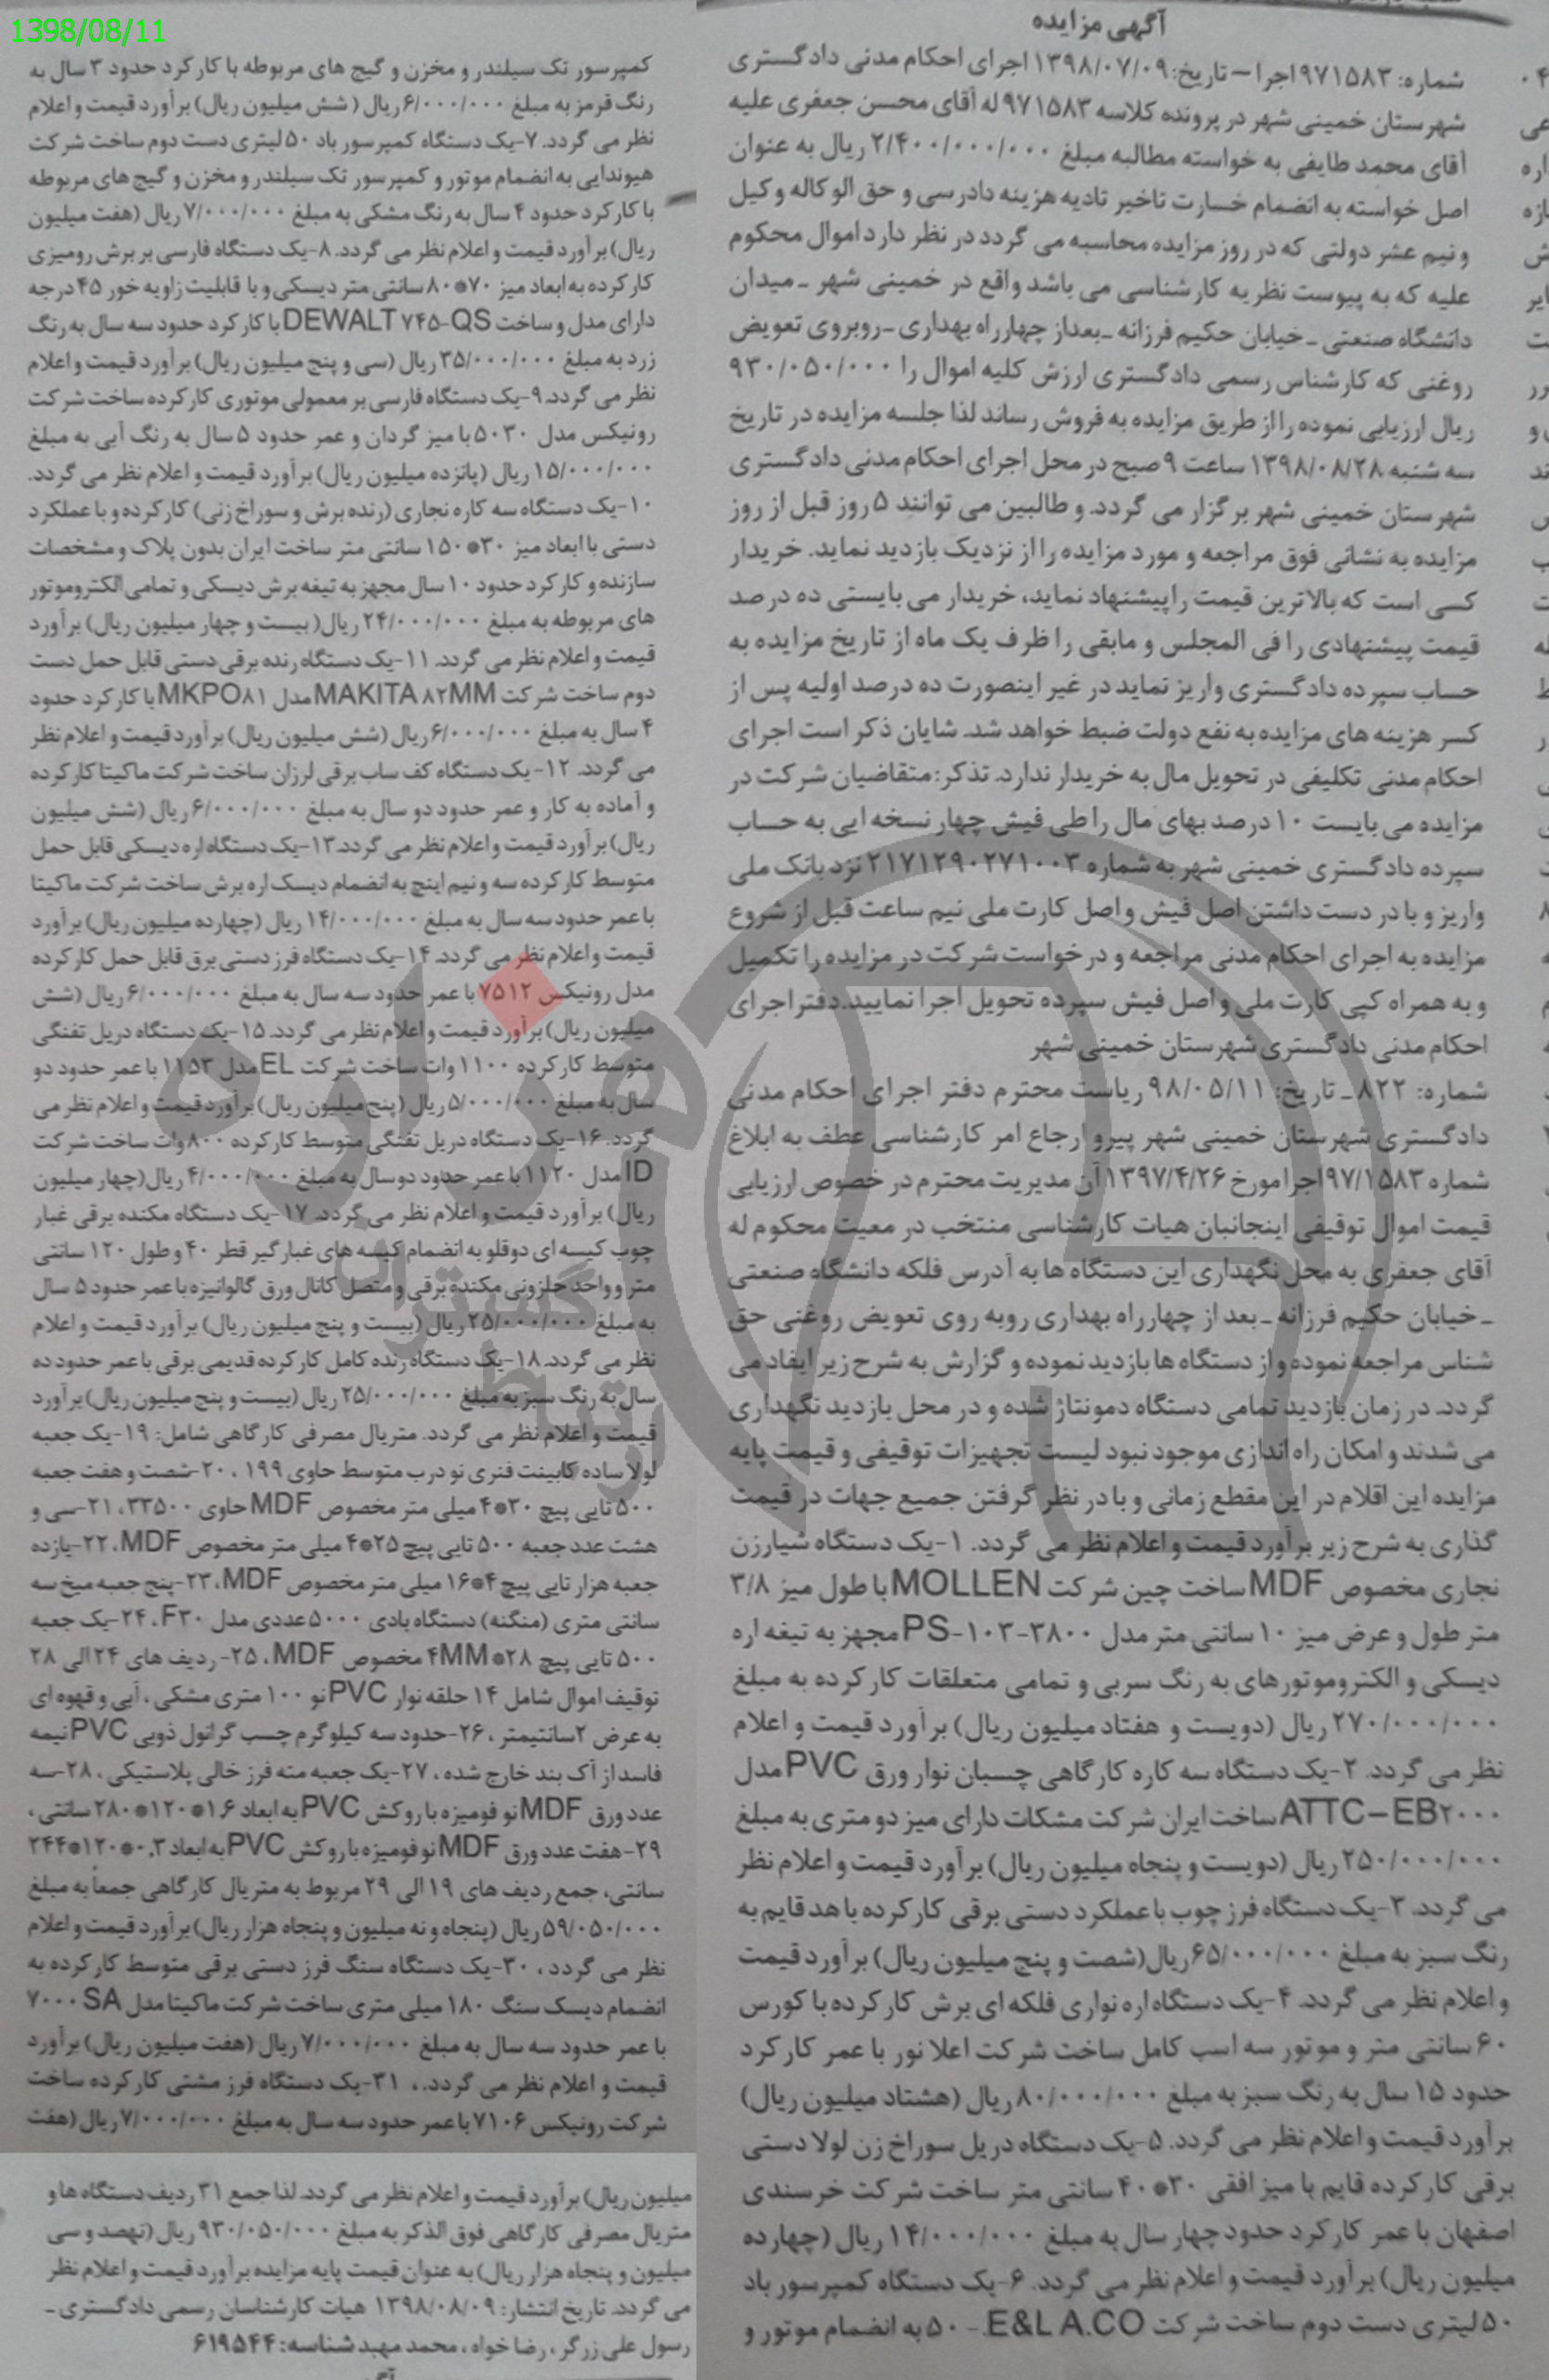 1398/08/11
آگهی مزایده
شماره: ۹۷۱۵۸۳اجرا – تاریخ: ۱۳۹۸/۰۷/۰۹ اجرای احکام مدنی دادگستری
شهرستان خمینی شهر در پرونده کلاسه ۹۷۱۵۸۳ له آقای محسن جعفری علیه
آقای محمد طایفی به خواسته مطالبه مبلغ ۲/۴۰۰/۰۰۰/۰۰۰ ریال به عنوان
اصل خواسته به انضمام خسارت تاخیر تادیه هزینه دادرسی و حق الوکاله وکیل
و نیم عشر دولتی که در روز مزایده محاسبه می گردد در نظر دارد اموال محکوم
علیه که به پیوست نظریه کارشناسی می باشد واقع در خمینی شهر ـ میدان
دانشگاه صنعتی ـ خیابان حکیم فرزانه ـ بعداز چهارراه بهداری ـ روبروی تعویض
روغنی که کارشناس رسمی دادگستری ارزش کلیه اموال را ۹۳۰/۰۵۰/۰۰۰
ریال ارزیابی نموده را از طریق مزایده به فروش رساند لذا جلسه مزایده در تاریخ
سه شنبه ۱۳۹۸/۰۸/۲۸ ساعت ۹ صبح در محل اجرای احکام مدنی دادگستری
شهرستان خمینی شهر برگزار می گردد. و طالبین می توانند ۵ روز قبل از روز
مزایده به نشانی فوق مراجعه و مورد مزایده را از نزدیک بازدید نماید. خریدار
کسی است که بالاترین قیمت را پیشنهاد نماید، خریدار می بایستی ده درصد
قیمت پیشنهادی را فی المجلس و مابقی را ظرف یک ماه از تاریخ مزایده به
حساب سپرده دادگستری واریز نماید در غیر اینصورت ده درصد اولیه پس از
کسر هزینه های مزایده به نفع دولت ضبط خواهد شد. شایان ذکر است اجرای
احکام مدنی تکلیفی در تحویل مال به خریدار ندارد. تذکر: متقاضیان شرکت در
مزایده می بایست ۱۰ درصد بهای مال را طی فیش چهار نسخه ایی به حساب
سپرده دادگستری خمینی شهر به شماره ۲۱۷۱۲۹۰۲۷۱۰۰۳ نزد بانک ملی
واریز و با در دست داشتن اصل فیش و اصل کارت ملی نیم ساعت قبل از شروع
مزایده به اجرای احکام مدنی مراجعه و درخواست شرکت در مزایده را تکمیل
و به همراه کپی کارت ملی و اصل فیش سپرده تحویل اجرا نمایید. دفتر اجرای
احکام مدنی دادگستری شهرستان خمینی شهر
شماره: ۸۲۲ ـ تاریخ: ۹۸/۰۵/۱۱ ریاست محترم دفتر اجرای احکام مدنی
دادگستری شهرستان خمینی شهر پیرو ارجاع امر کارشناسی عطف به ابلاغ
شماره ۹۷/۱۵۸۳اجرا مورخ ۱۳۹۷/۴/۲۶ آن مدیریت محترم در خصوص ارزیابی
قیمت اموال توقیفی اینجانبان هیات کارشناسی منتخب در معیت محکوم له
آقای جعفری به محل نگهداری این دستگاه ها به آدرس فلکه دانشگاه صنعتی
ـ خیابان حکیم فرزانه ـ بعد از چهارراه بهداری روبه روی تعویض روغنی حق
شناس مراجعه نموده و از دستگاه ها بازدید نموده و گزارش به شرح زیر ایفاد می
گردد. در زمان بازدید تمامی دستگاه دمونتاژ شده و در محل بازدید نگهداری
می شدند و امکان راه اندازی موجود نبود لیست تجهیزات توقیفی و قیمت پایه
مزایده این اقلام در این مقطع زمانی و با در نظر گرفتن جمیع جهات در قیمت
گذاری به شرح زیر برآورد قیمت و اعلام نظر می گردد. ۱-یک دستگاه شیارزن
نجاری مخصوص MDF ساخت چین شرکت MOLLEN با طول میز ۳/۸
متر طول و عرض میز ۱۰ سانتی متر مدل PS-۱۰۳-۳۸۰۰ مجهز به تیغه اره
دیسکی و الکتروموتورهای به رنگ سربی و تمامی متعلقات کارکرده به مبلغ
۲۷۰/۰۰۰/۰۰۰ ریال (دویست و هفتاد میلیون ریال) برآورد قیمت و اعلام
نظر می گردد. ۲-یک دستگاه سه کاره کارگاهی چسبان نوار ورق PVC مدل
ATTC – EB۲۰۰۰ ساخت ایران شرکت مشکات دارای میز دو متری به مبلغ
۲۵۰/۰۰۰/۰۰۰ ریال (دویست و پنجاه میلیون ریال) برآورد قیمت و اعلام نظر
می گردد. ۳-یک دستگاه فرز چوب با عملکرد دستی برقی کارکرده با هد قایم به
رنگ سبز به مبلغ ۶۵/۰۰۰/۰۰۰ ریال(شصت و پنج میلیون ریال) برآورد قیمت
و اعلام نظر می گردد. ۴-یک دستگاه اره نواری فلکه ای برش کارکرده با کورس
۶۰ سانتی متر و موتور سه اسب کامل ساخت شرکت اعلا نور با عمر کارکرد
حدود ۱۵ سال به رنگ سبز به مبلغ ۸۰/۰۰۰/۰۰۰ ریال (هشتاد میلیون ریال)
برآورد قیمت و اعلام نظر می گردد. ۵-یک دستگاه دریل سوراخ زن لولا دستی
برقی کارکرده قایم با میز افقی ۳۰*۴۰ سانتی متر ساخت شرکت خرسندی
اصفهان با عمر کارکرد حدود چهار سال به مبلغ ۱۴/۰۰۰/۰۰۰ ریال (چهارده
میلیون ریال) برآورد قیمت و اعلام نظر می گردد. ۶-یک دستگاه کمپرسور باد
۵۰ لیتری دست دوم ساخت شرکت E&L A.CO. - ۵۰ به انضمام موتور و
کمپرسور تک سیلندر و مخزن و گیج های مربوطه با کارکرد حدود ۳ سال به
رنگ قرمز به مبلغ ۶/۰۰۰/۰۰۰ ریال (شش میلیون ریال) برآورد قیمت و اعلام
نظر می گردد. ۷-یک دستگاه کمپرسور باد ۵۰ لیتری دست دوم ساخت شرکت
هیوندایی به انضمام موتور و کمپرسور تک سیلندر و مخزن و گیج های مربوطه
با کارکرد حدود ۴ سال به رنگ مشکی به مبلغ ۷/۰۰۰/۰۰۰ ریال (هفت میلیون
ریال) برآورد قیمت و اعلام نظر می گردد. ۸-یک دستگاه فارسی بر برش رومیزی
کارکرده به ابعاد میز ۷۰*۸۰ سانتی متر دیسکی و با قابلیت زاویه خور ۴۵ درجه
دارای مدل و ساخت DEWALT ۷۴۵-QS با کارکرد حدود سه سال به رنگ
زرد به مبلغ ۳۵/۰۰۰/۰۰۰ ریال (سی و پنج میلیون ریال) برآورد قیمت و اعلام
نظر می گردد. ۹-یک دستگاه فارسی بر معمولی موتوری کارکرده ساخت شرکت
رونیکس مدل ۵۰۳۰ با میز گردان و عمر حدود ۵ سال به رنگ آبی به مبلغ
۱۵/۰۰۰/۰۰۰ ریال (پانزده میلیون ریال) برآورد قیمت و اعلام نظر می گردد.
۱۰-یک دستگاه سه کاره نجاری (رنده برش و سوراخ زنی) کارکرده و با عملکرد
دستی با ابعاد میز ۳۰*۱۵۰ سانتی متر ساخت ایران بدون پلاک و مشخصات
سازنده و کارکرد حدود ۱۰ سال مجهز به تیغه برش دیسکی و تمامی الکتروموتور
های مربوطه به مبلغ ۲۴/۰۰۰/۰۰۰ ریال( بیست و چهار میلیون ریال) برآورد
قیمت و اعلام نظر می گردد. ۱۱-یک دستگاه رنده برقی دستی قابل حمل دست
دوم ساخت شرکت MAKITA ۸۲MM مدل MKPO۸۱ با کارکرد حدود
۴ سال به مبلغ ۶/۰۰۰/۰۰۰ ریال (شش میلیون ریال) برآورد قیمت و اعلام نظر
می گردد. ۱۲- یک دستگاه کف ساب برقی لرزان ساخت شرکت ماکیتا کارکرده
و آماده به کار و عمر حدود دو سال به مبلغ ۶/۰۰۰/۰۰۰ ریال (شش میلیون
ریال) برآورد قیمت و اعلام نظر می گردد.۱۳-یک دستگاه اره دیسکی قابل حمل
متوسط کارکرده سه و نیم اینچ به انضمام دیسک اره برش ساخت شرکت ماکیتا
با عمر حدود سه سال به مبلغ ۱۴/۰۰۰/۰۰۰ ریال (چهارده میلیون ریال) برآورد
قیمت و اعلام نظر می گردد. ۱۴-یک دستگاه فرز دستی برق قابل حمل کارکرده
مدل رونیکس ۷۵۱۲ با عمر حدود سه سال به مبلغ ۶/۰۰۰/۰۰۰ ریال (شش
میلیون ریال) برآورد قیمت و اعلام نظر می گردد. ۱۵-یک دستگاه دریل تفنگی
متوسط کارکرده ۱۱۰۰ وات ساخت شرکت EL مدل ۱۱۵۳ با عمر حدود دو
سال به مبلغ ۵/۰۰۰/۰۰۰ ریال (پنج میلیون ریال) برآورد قیمت و اعلام نظر می
گردد. ۱۶-یک دستگاه دریل تفنگی متوسط کارکرده ۸۰۰ وات ساخت شرکت
ID مدل ۱۱۲۰ با عمر حدود دو سال به مبلغ ۴/۰۰۰/۰۰۰ ریال(چهار میلیون
ریال) برآورد قیمت و اعلام نظر می گردد. ۱۷-یک دستگاه مکنده برقی غبار
چوب کیسه ای دوقلو به انضمام کیسه های غبارگیر قطر ۴۰ و طول ۱۲۰ سانتی
متر و واحد حلزونی مکنده برقی و متصل کانال ورق گالوانیزه با عمر حدود ۵ سال
به مبلغ ۲۵/۰۰۰/۰۰۰ ریال (بیست و پنج میلیون ریال) برآورد قیمت و اعلام
نظر می گردد. ۱۸-یک دستگاه رنده کامل کارکرده قدیمی برقی با عمر حدود ده
سال به رنگ سبز به مبلغ ۲۵/۰۰۰/۰۰۰ ریال (بیست و پنج میلیون ریال) برآورد
قیمت و اعلام نظر می گردد. متریال مصرفی کارگاهی شامل: ۱۹-یک جعبه
لولا ساده کابینت فنری نو درب متوسط حاوی ۱۹۹ ، ۲۰-شصت و هفت جعبه
۵۰۰ تایی پیچ ۳۰*۴ میلی متر مخصوص MDF حاوی ۳۳۵۰۰، ۲۱-سی و
هشت عدد جعبه ۵۰۰ تایی پیچ ۲۵*۴ میلی متر مخصوص MDF، ۲۲-یازده
جعبه هزار تایی پیچ ۴*۱۶ میلی متر مخصوص MDF، ۲۳-پنج جعبه میخ سه
سانتی متری (منگنه) دستگاه بادی ۵۰۰۰ عددی مدل F۳۰، ۲۴-یک جعبه
۵۰۰ تایی پیچ ۲۸*۴MM مخصوص MDF، ۲۵- ردیف های ۲۴ الی ۲۸
توقیف اموال شامل ۱۴ حلقه نوار PVC نو ۱۰۰ متری مشکی ، آبی و قهوه ای
به عرض ۲سانتیمتر ، ۲۶-حدود سه کیلوگرم چسب گرانول ذوبی PVC نیمه
فاسد از آک بند خارج شده ، ۲۷-یک جعبه مته فرز خالی پلاستیکی ، ۲۸-سه
عدد ورق MDF نو فومیزه با روکش PVC به ابعاد ۱.۶*۱۲۰*۲۸۰ سانتی ،
۲۹-هفت عدد ورق MDF نو فومیزه با روکش PVC به ابعاد ۰.۳*۱۲۰*۲۴۴
سانتی، جمع ردیف های ۱۹ الی ۲۹ مربوط به متریال کارگاهی جمعاً به مبلغ
۵۹/۰۵۰/۰۰۰ ریال (پنجاه و نه میلیون و پنجاه هزار ریال) برآورد قیمت و اعلام
نظر می گردد ، ۳۰-یک دستگاه سنگ فرز دستی برقی متوسط کارکرده به
انضمام دیسک سنگ ۱۸۰ میلی متری ساخت شرکت ماکیتا مدل SA ۷۰۰۰
با عمر حدود سه سال به مبلغ ۷/۰۰۰/۰۰۰ ریال (هفت میلیون ریال) برآورد
قیمت و اعلام نظر می گردد. ، ۳۱-یک دستگاه فرز مشتی کارکرده ساخت
شرکت رونیکس ۷۱۰۶ با عمر حدود سه سال به مبلغ ۷/۰۰۰/۰۰۰ ریال (هفت
میلیون ریال) برآورد قیمت و اعلام نظر می گردد. لذا جمع ۳۱ ردیف دستگاه ها و
متریال مصرفی کارگاهی فوق الذکر به مبلغ ۹۳۰/۰۵۰/۰۰۰ ریال (نهصد و سی
میلیون و پنجاه هزار ریال) به عنوان قیمت پایه مزایده برآورد قیمت و اعلام نظر
می گردد. تاریخ انتشار: ۱۳۹۸/۰۸/۰۹ هیات کارشناسان رسمی دادگستری -
رسول علی زرگر ، رضا خواه ، محمد مهبد شناسه: ۶۱۹۵۴۴